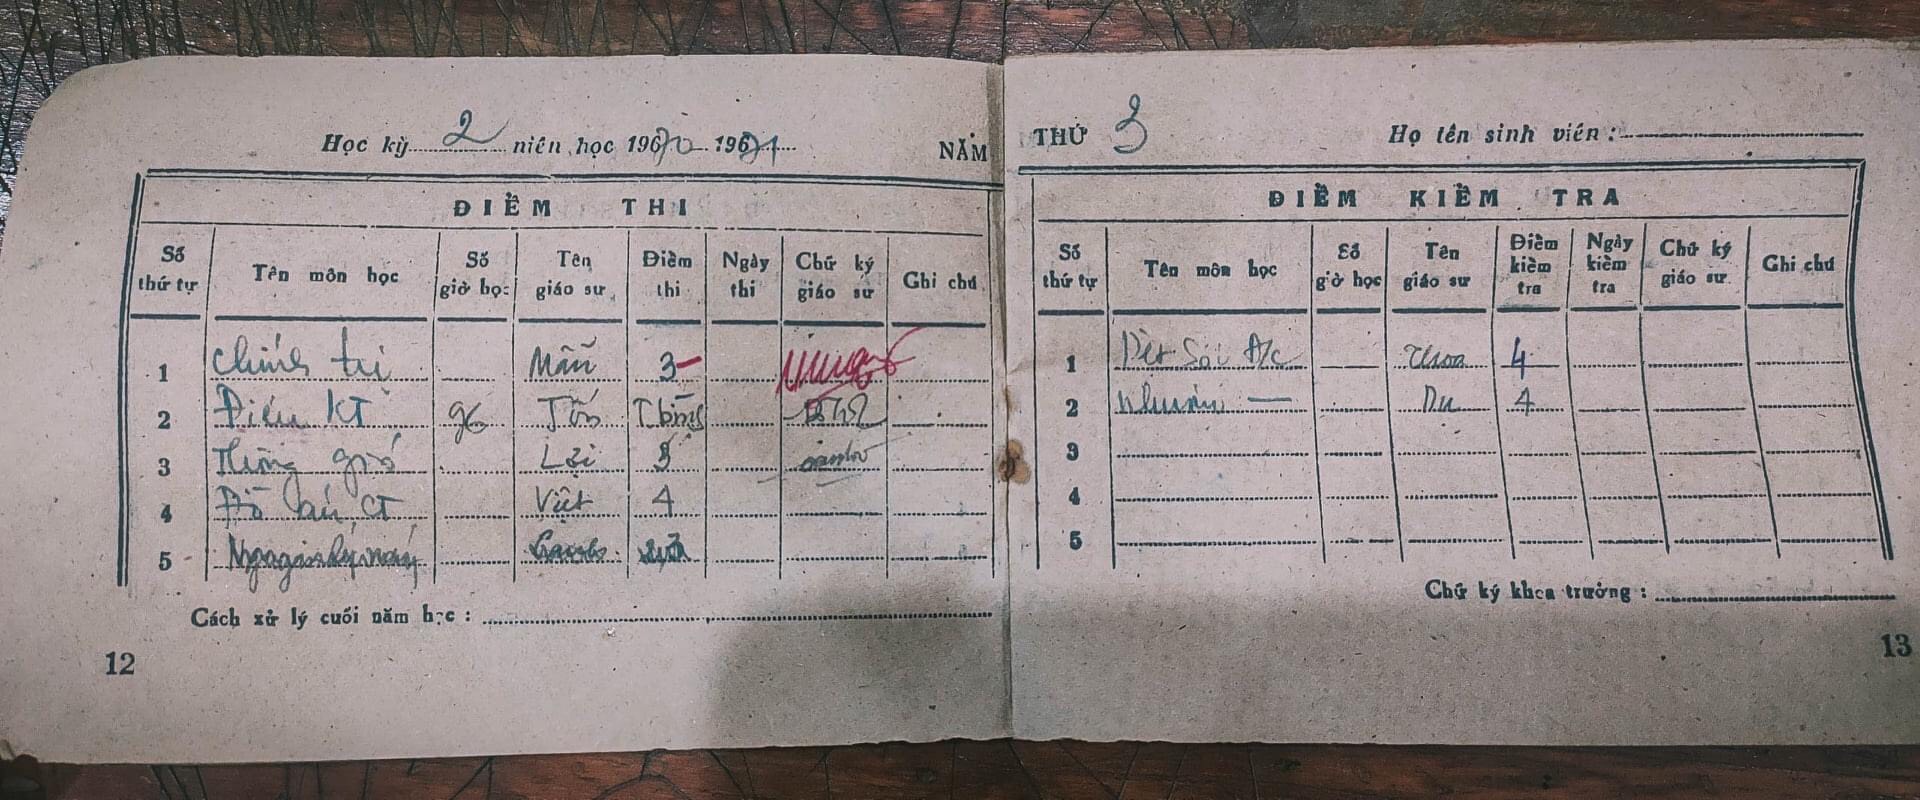 Học kỳ 2 niên học 1970 - 1971 NĂM THỨ 3 Họ tên sinh viên :
ĐIỂM THI
Số thứ tự Tên môn học Số giờ học Tên giáo sư Điểm thi Ngày thi Chữ ký giáo sư Ghi chú
1 Chính trị Mẫn 3
2 Điều KT 96
3 Thông gió Lại 3
4 Đồ án CT Việt 4
5
Cách xử lý cuối năm học :
12
ĐIỂM KIỂM TRA
Số thứ tự Tên môn học Số giờ học Tên giáo sư Điểm kiểm tra Ngày kiểm tra Chữ ký giáo sư Ghi chú
1 Dệt Sợi Đ/c Thoa 4
2 Nhuộm — Dư 4
3
4
5
Chữ ký khoa trưởng :
13